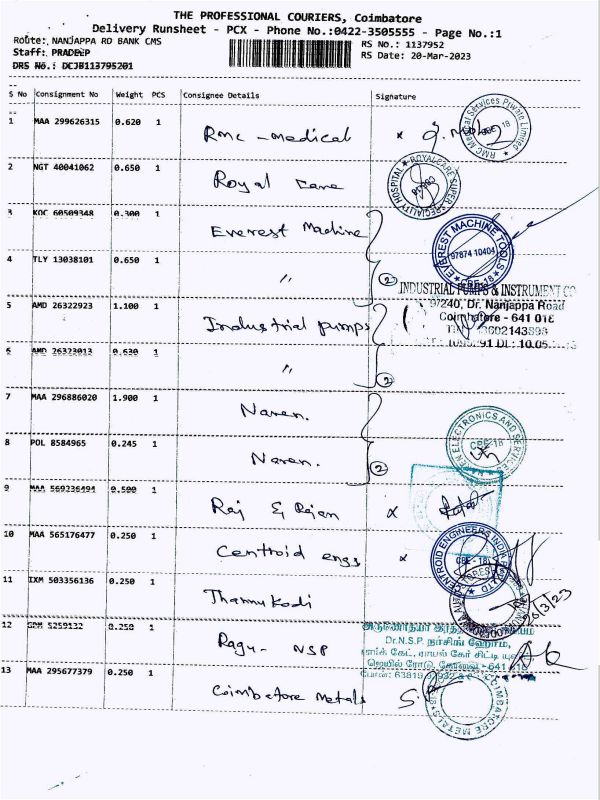 THE PROFESSIONAL COURIERS, Coimbatore
Delivery Runsheet - PCX - Phone No.:0422-3505555 - Page No.:1
Route: NANJAPPA RD BANK CMS
RS No.: 1137952
Staff: PRADEEP
RS Date: 20-Mar-2023
DRS No.: DCJB113795201
S No Consignment No Weight PCS Consignee Details Signature
1 MAA 299626315 0.620 1 Rmc - medical x
RMC Medical Services Private Limited
2 NGT 40041062 0.650 1 Royal care
ROYALCARE SUPER SPECIALITY HOSPITAL
3 KOC 60509348 0.300 1 Everest Machine
EVEREST MACHINE TOOLS
97874 10404
CBE-18
4 TLY 13038101 0.650 1 " 2
INDUSTRIAL PUMPS & INSTRUMENT CO
97240, Dr. Nanjappa Road
Coimbatore - 641 018
5 AMD 26322923 1.100 1 Industrial pumps
6 AMD 26323013 0.630 1 " 2
7 MAA 296886020 1.900 1 Naren.
NAREN ELECTRONICS AND SERVICES
CBE-18
8 POL 8584965 0.245 1 Naren. 2
9 MAA 569236494 0.500 1 Raj & Rajan x
10 MAA 565176477 0.250 1 Centroid engs x
CENTROID ENGINEERS INDIA
CBE - 18
11 IXM 503356136 0.250 1 Thannukodi
26/3/23
12 GDM 5259132 0.250 1 Ragu - NSP
Dr.N.S.P. நர்சிங் ஹோம்,
ஜெயில் ரோடு, கோவை - 641 018
13 MAA 295677379 0.250 1 Coimbatore Metals
COIMBATORE METALS